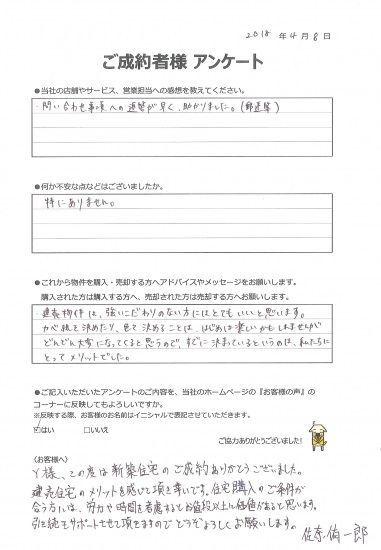 2018 年 4 月 8 日
ご成約者様 アンケート
●当社の店舗やサービス、営業担当への感想を教えてください。
問い合わせ事項への連絡が早く、助かりました。(郵送等)
●何か不安な点などはございましたか。
特にありません。
●これから物件を購入・売却する方へアドバイスやメッセージをお願いします。
購入された方は購入する方へ、売却された方は売却する方へお願いします。
建売物件は、強いこだわりのない方にはとてもいいと思います。
カベ紙を決めたり、色々決めることは、はじめは楽しいかもしれませんが
どんどん大変になってくると思うので、すでに決まっているというのは、私たちに
とってメリットでした。
●ご記入いただいたアンケートのご内容を、当社のホームページの『お客様の声』の
コーナーに反映してもよろしいですか。
※反映する際、お客様のお名前はイニシャルで表記させていただきます。
☑はい □いいえ
ご協力ありがとうございました!
〈お客様へ〉
Y様、この度は新築住宅のご成約ありがとうございました。
建売住宅のメリットを感じて頂き幸いです。住宅購入のご条件が
合う方には、労力や時間を考慮するとお値段以上に価値があると思います。
引き続きサポートさせて頂きますのでどうぞよろしくお願いします。